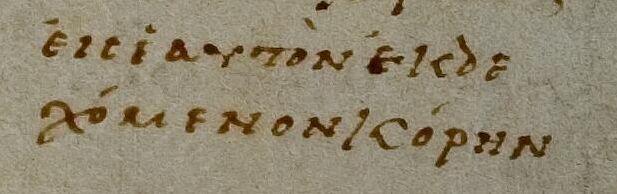 ἐπὶ αυτὸν ἐκδε
χόμενον κόρην